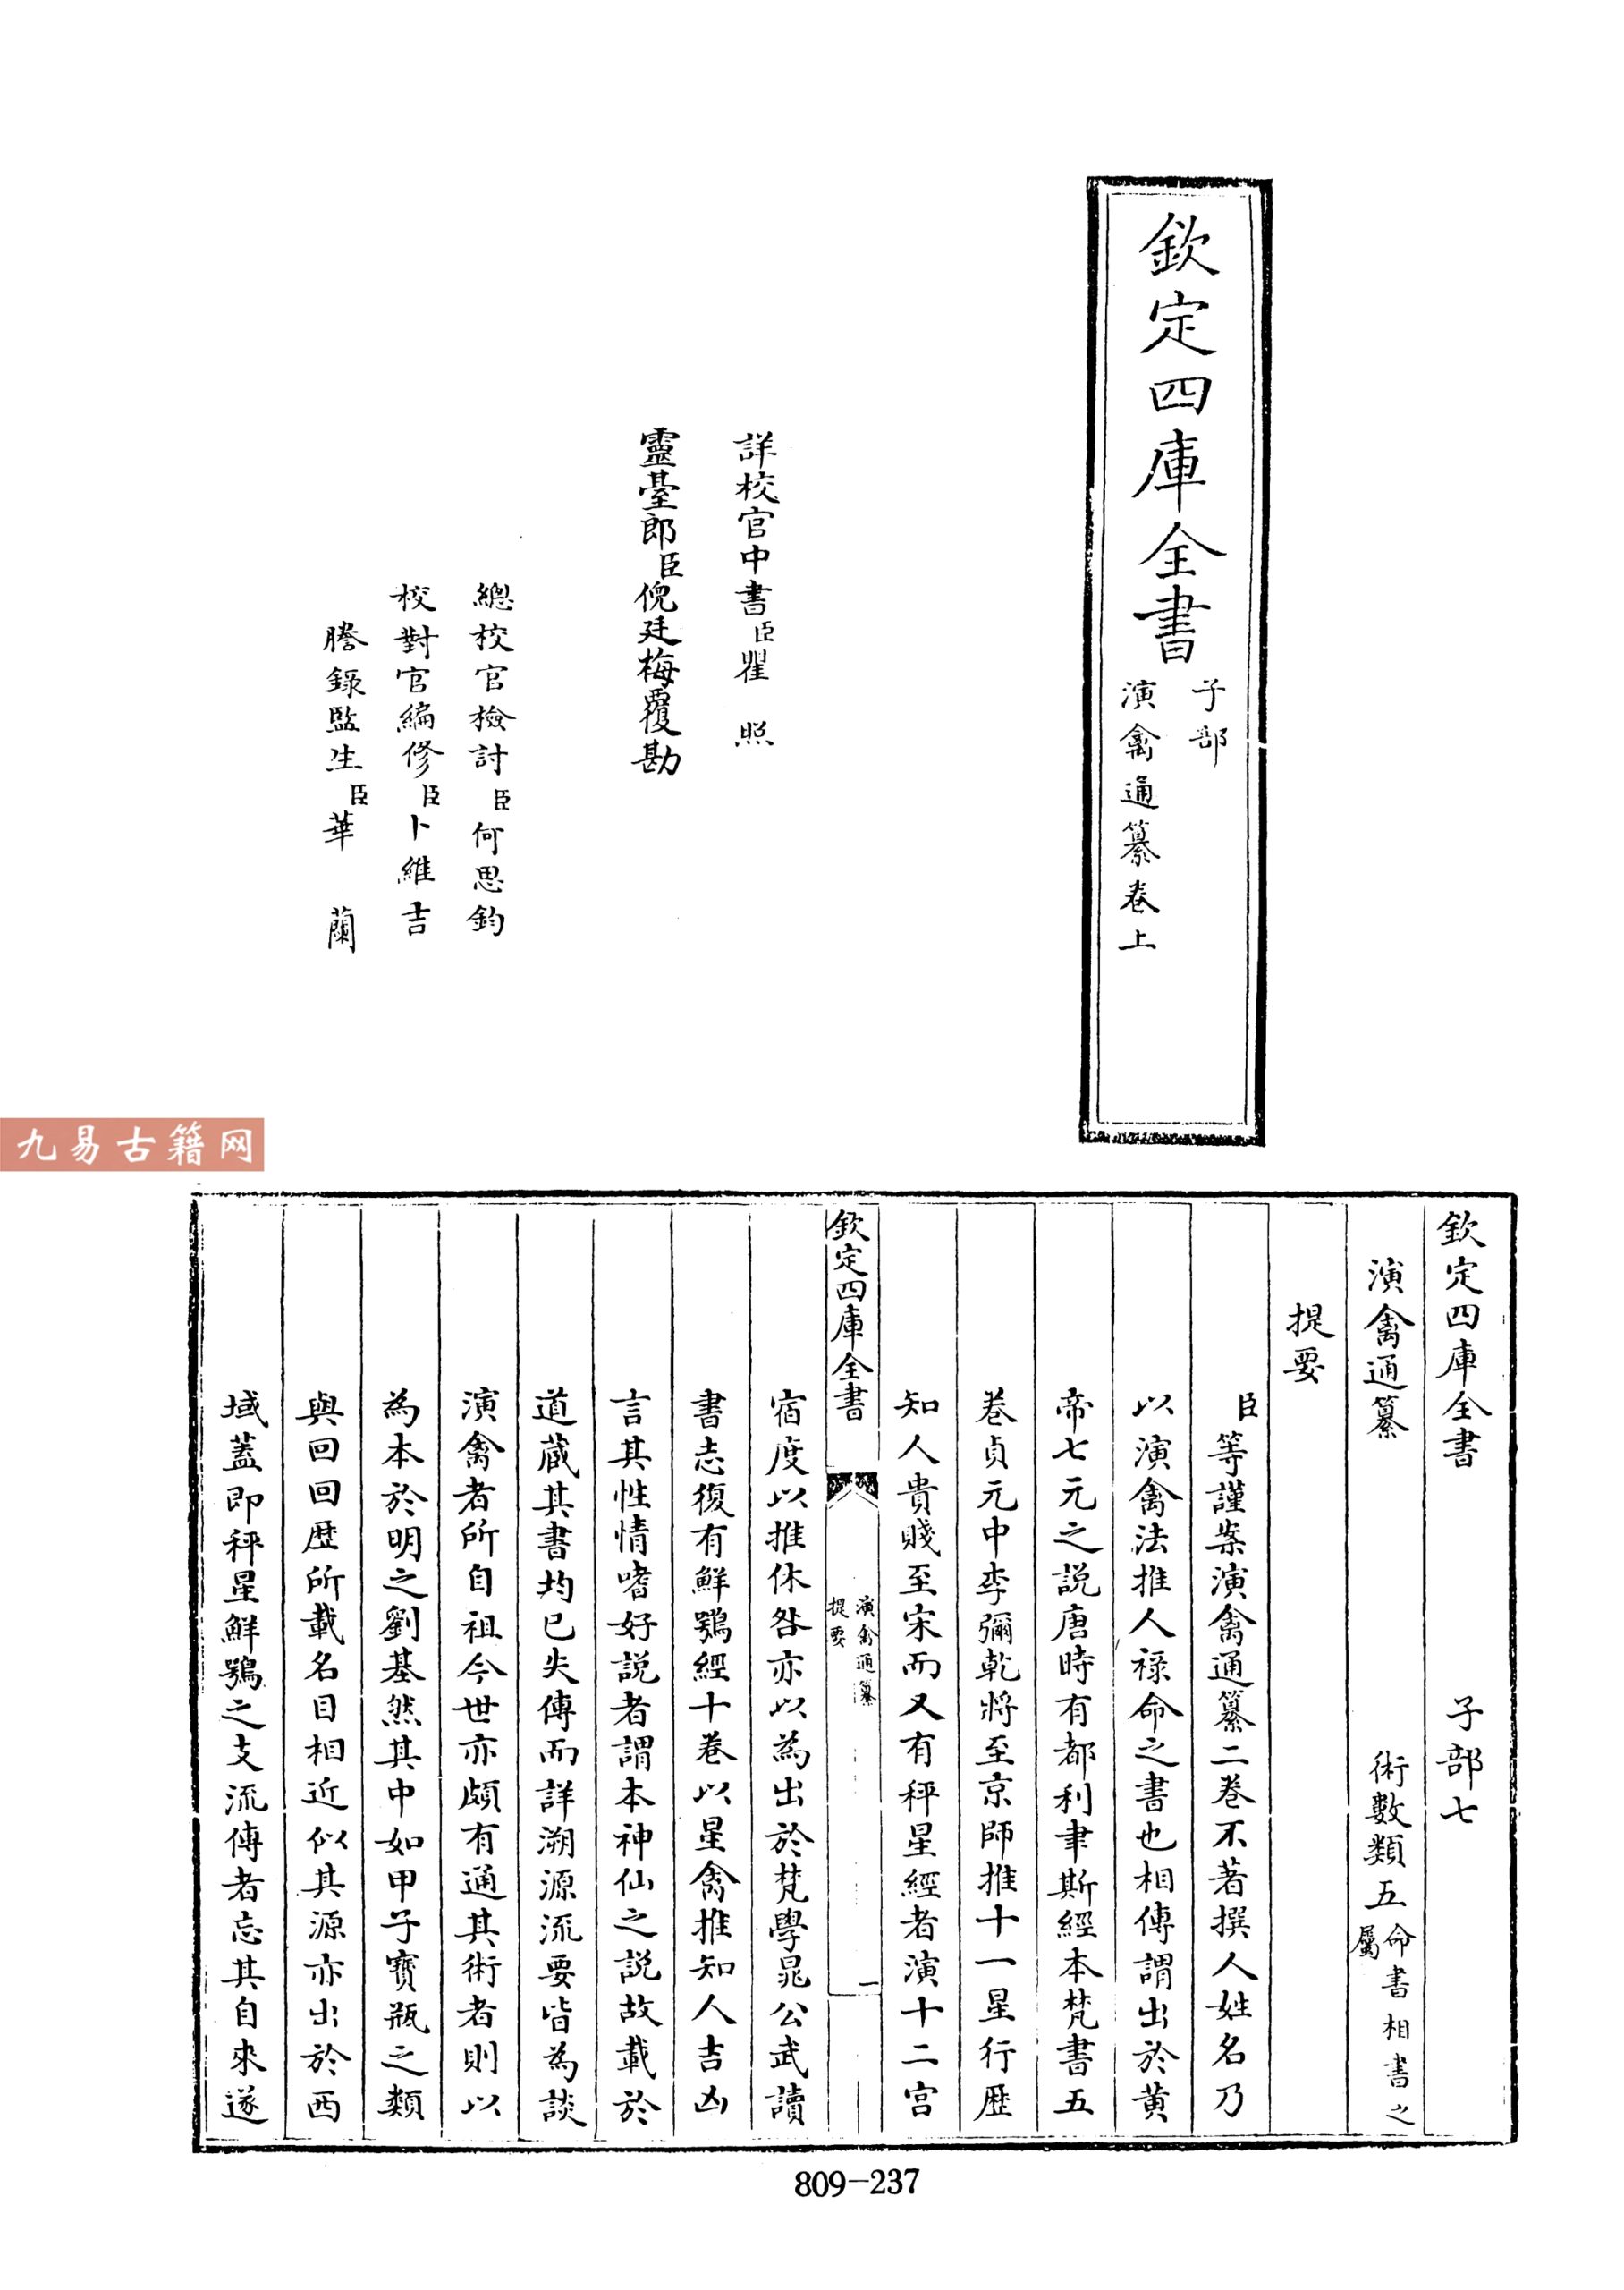 欽定四庫全書
子部
演禽通纂卷上
詳校官中書臣瞿照
靈臺郎臣倪廷梅覆勘
總校官檢討臣何思鈞
校對官編修臣卜維吉
謄錄監生臣華蘭
九易古籍网
欽定四庫全書 子部七
演禽通纂 術數類五命書相書之屬
提要
臣等謹案演禽通纂二卷不著撰人姓名乃
以演禽法推人祿命之書也相傳謂出於黃
帝七元之説唐時有都利聿斯經本梵書五
卷貞元中李彌乾將至京師推十一星行歴
知人貴賤至宋而又有秤星經者演十二宫
欽定四庫全書
演禽通纂
提要
一
宿度以推休咎亦以為出於梵學晁公武讀
書志復有鮮鶚經十卷以星禽推知人吉凶
言其性情嗜好説者謂本神仙之説故載於
道藏其書均已失傳而詳溯源流要皆為談
演禽者所自祖今世亦頗有通其術者則以
為本於明之劉基然其中如甲子寳瓶之類
與回回歴所載名目相近似其源亦出於西
域蓋即秤星鮮鶚之支流傳者忘其自來遂
809-237